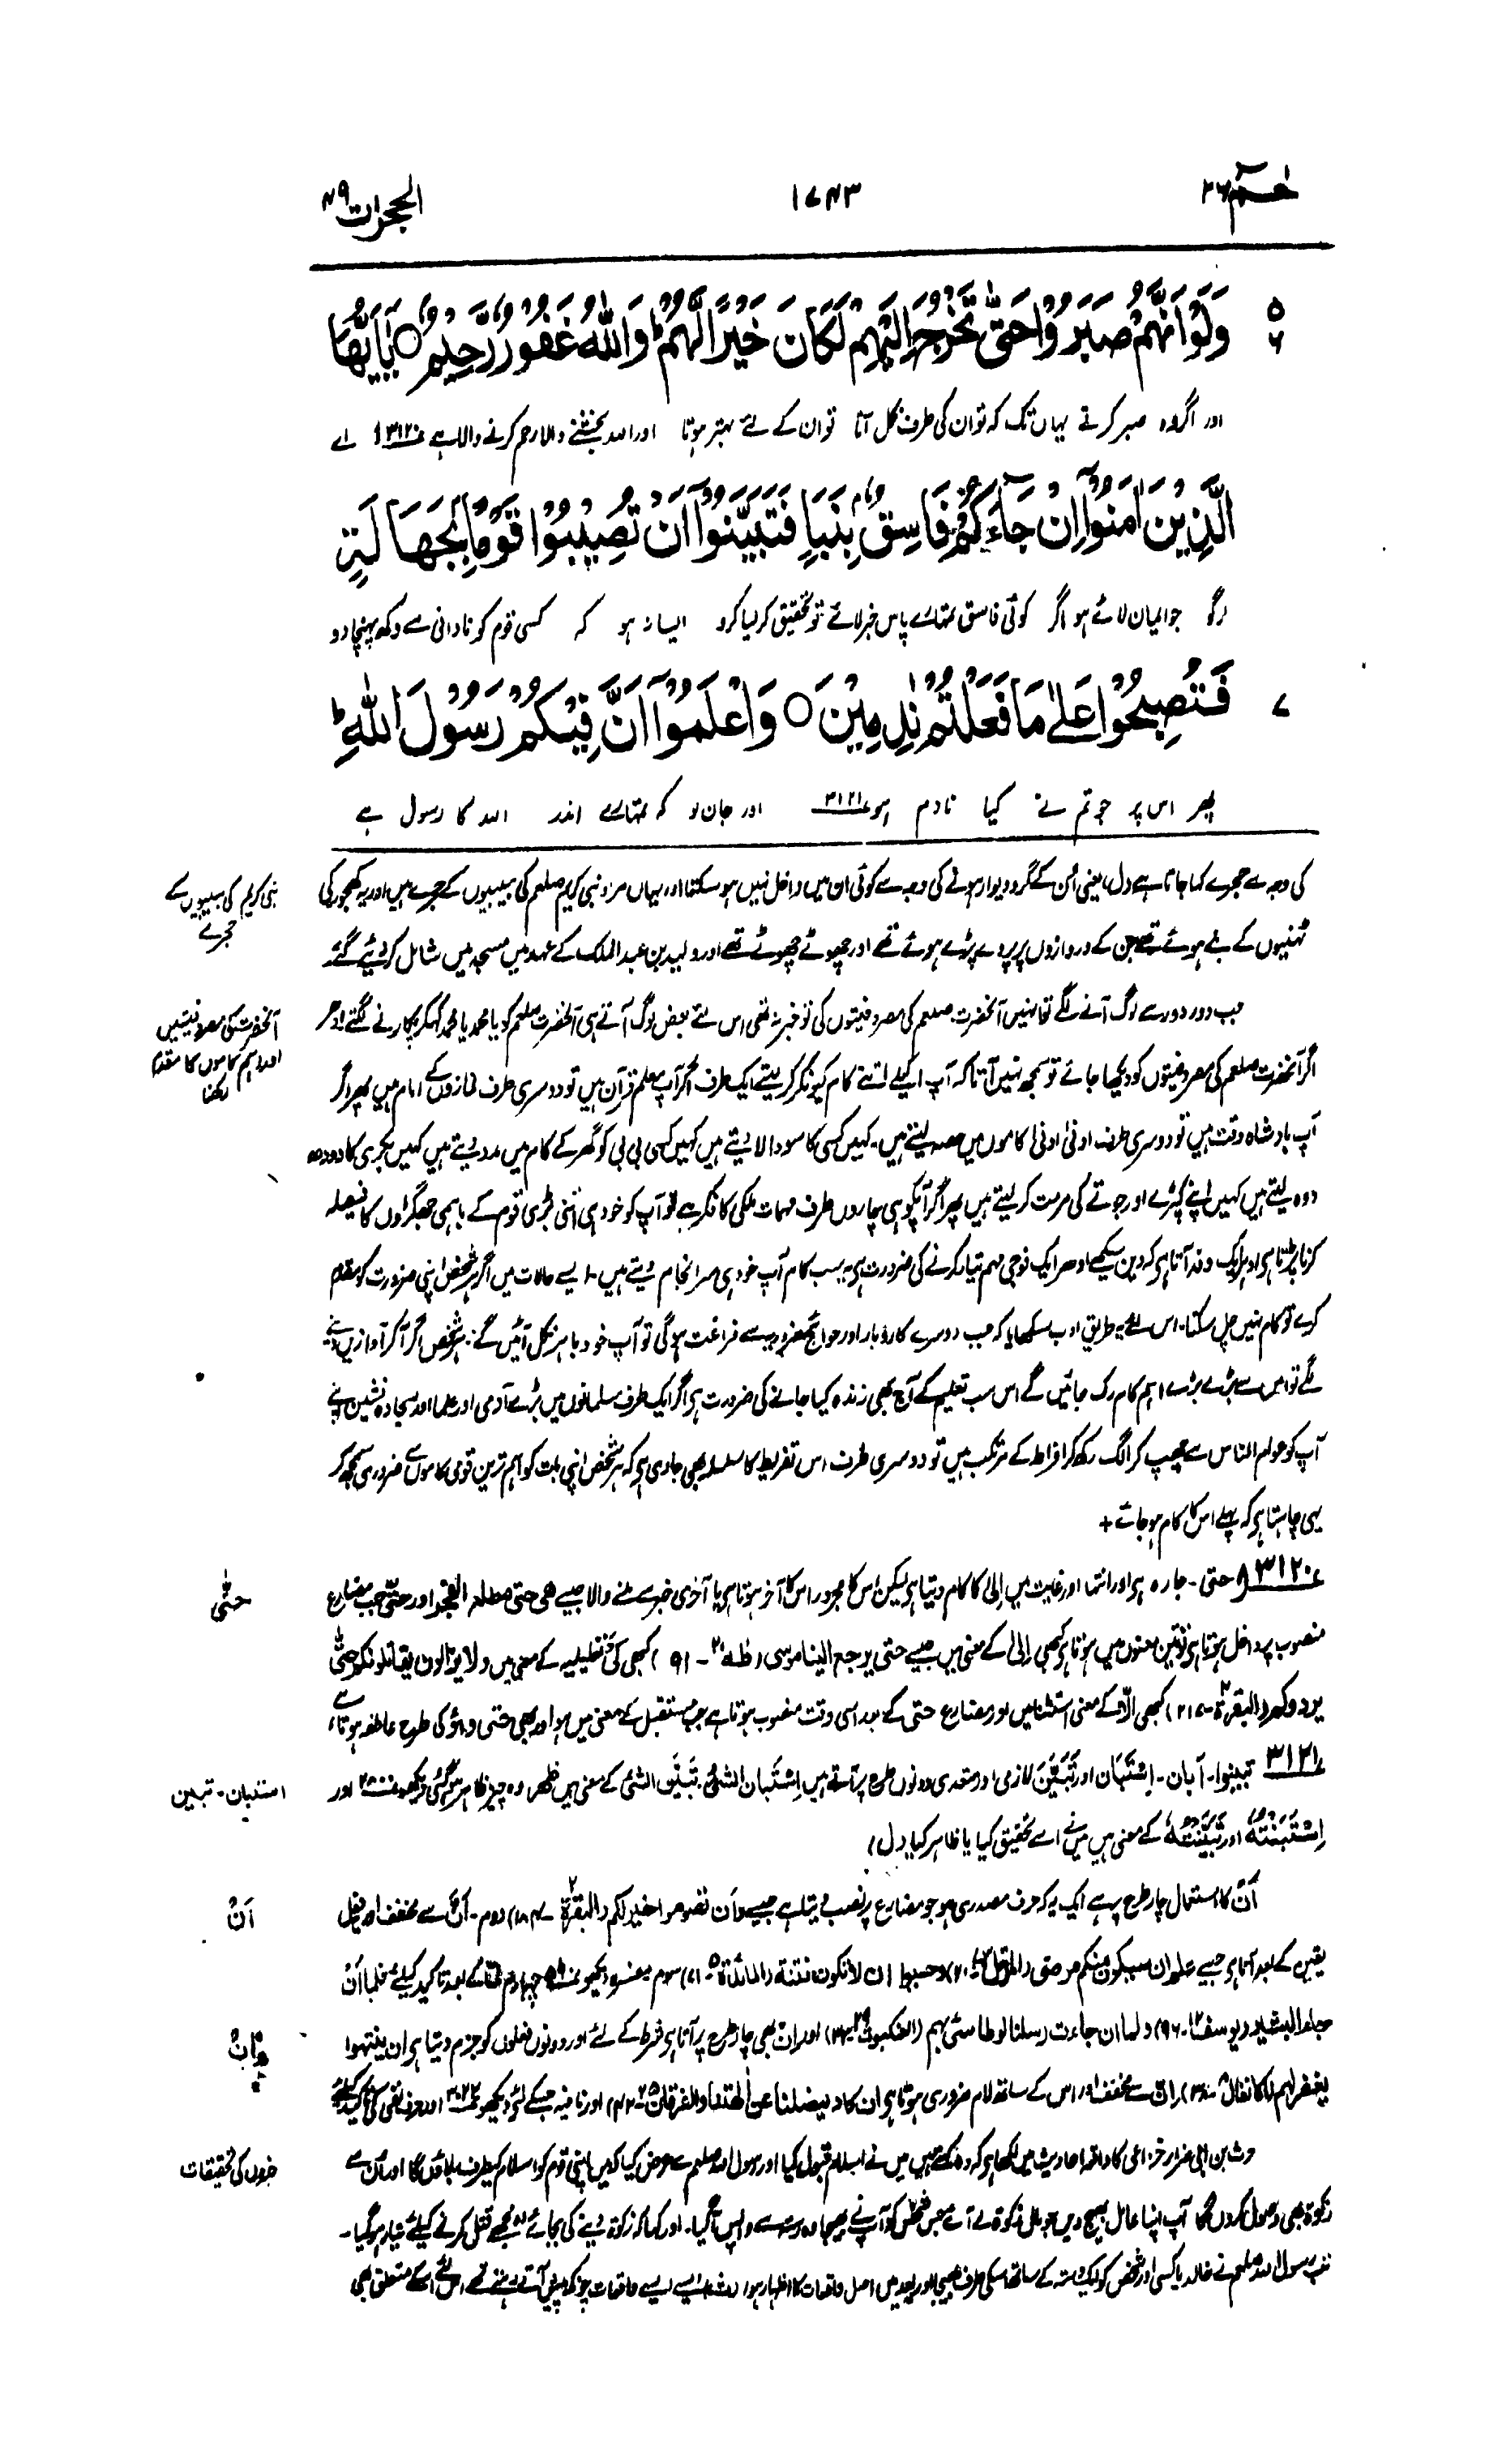 حٰمٓ ۲۶
۱۷۴۳
الحجرات ۴۹
۵
وَلَوْ اَنَّهُمْ صَبَرُوْا حَتّٰى تَخْرُجَ اِلَيْهِمْ لَكَانَ خَيْرًا لَّهُمْ ؕ وَاللّٰهُ غَفُوْرٌ رَّحِيْمٌ ○ يٰۤاَيُّهَا
۶
اور اگر وہ صبر کرتے یہاں تک کہ تو ان کی طرف نکل آتا تو ان کے لئے بہتر ہوتا اور اللہ بخشنے والا رحم کرنے والا ہے ۳۱۲۰ اے
الَّذِيْنَ اٰمَنُوْۤا اِنْ جَآءَكُمْ فَاسِقٌۢ بِنَبَاٍ فَتَبَيَّنُوْۤا اَنْ تُصِيْبُوْا قَوْمًۢا بِجَهَالَةٍ
لوگو جو ایمان لائے ہو اگر کوئی فاسق تمہارے پاس خبر لائے تو تحقیق کر لیا کرو ایسا نہ ہو کہ کسی قوم کو نادانی سے دکھ پہنچا دو
فَتُصْبِحُوْا عَلٰى مَا فَعَلْتُمْ نٰدِمِيْنَ ○ وَاعْلَمُوْۤا اَنَّ فِيْكُمْ رَسُوْلَ اللّٰهِ ؕ
۷
پھر اس پر جو تم نے کیا نادم ہو ۳۱۲۱ اور جان لو کہ تمہارے اندر اللہ کا رسول ہے
کی وجہ سے حجرے کہا جاتا ہے (ل) یعنی ان کے گرد دیوار ہونے کی وجہ سے کوئی ان میں داخل نہیں ہو سکتا اور یہاں مراد نبی کریم صلعم کی بیبیوں کے حجرے ہیں اور یہ کھجور کی
نبی کریم کی بیبیوں کے
حجرے
ٹہنیوں کے بنے ہوئے تھے جن کے دروازوں پر پردے پڑے ہوئے تھے اور چھوٹے چھوٹے تھے اور ولید بن عبد الملک کے عہد میں مسجد میں شامل کر دیئے گئے
جب دور دور سے لوگ آنے لگے تو انہیں آنحضرت صلعم کی مصروفیتوں کی تو خبر نہ تھی اس لئے بعض لوگ آتے ہی آنحضرت صلعم کو یا محمد یا محمد کہکر پکارنے لگتے ادھر
آنحضرت کی مصروفیتیں
اور اہم کاموں کا مقدم
رکھنا
اگر آنحضرت صلعم کی مصروفیتوں کو دیکھا جائے تو سمجھ نہیں آتا کہ آپ اکیلے اتنے کام کیونکر کر لیتے ایک طرف اگر آپ معلم قرآن ہیں تو دوسری طرف نمازوں کے امام ہیں پھر اگر
آپ بادشاہ وقت ہیں تو دوسری طرف ادنیٰ ادنیٰ کاموں میں حصہ لیتے ہیں۔ کہیں کسی کا سودا لا دیتے ہیں کہیں کسی بی بی کو گھر کے کام میں مدد دیتے ہیں کہیں بکری کا دودھ
دوہ لیتے ہیں کہیں اپنے کپڑے اور جوتے کی مرمت کر لیتے ہیں پھر اگر آپکو ہی چاروں طرف مہمات ملکی کا فکر ہے تو آپ کو خود ہی اتنی بڑی قوم کے باہمی جھگڑوں کا فیصلہ
کرنا پڑتا ہی ادہر ایک وفد آتا ہی کہ دین سیکھے ادھر ایک فوجی مہم تیار کرنے کی ضرورت ہی یہ سب کام آپ خود ہی سرانجام دیتے ہیں۔ ایسے حالات میں اگر ہر شخص اپنی ضرورت کو مقدم
کرے تو کام نہیں چل سکتا۔ اس لئے یہ طریق ادب سکھایا کہ جب دوسرے کاروبار اور حوائج ضروریہ سے فراغت ہوگی تو آپ خود باہر نکل آئیں گے۔ ہر شخص اگر آکر آوازیں دینے
لگے تو اس سے بڑے بڑے اہم کام رک جائیں گے اس سب تعلیم کے آج بھی زندہ کیا جانے کی ضرورت ہی اگر ایک طرف مسلمانوں میں بڑے آدمی اور علما اور سجادہ نشین اپنے
آپ کو عوام الناس سے چھپ کر الگ رکھ کر افراط کے مرتکب ہیں تو دوسری طرف اس تفریط کا سلسلہ بھی جاری ہی کہ ہر شخص اپنی بات کو اہم ترین قومی کاموں سے ضروری سمجھ کر
یہی چاہتا ہی کہ پہلے اس کا کام ہو جائے +
۳۱۲۰ حتی۔ جارہ ہی اور انتہا اور غایت میں اِلیٰ کا کام دیتا ہی لیکن اس کا مجرور اس کا آخر ہوتا ہی یا آخری جز سے ملنے والا جیسے ھی حتی مطلع الفجر اور حتّٰی جب مضارع
حتّٰی
منصوب پر داخل ہوتا ہی تو تین معنوں میں ہوتا ہی کبھی اِلیٰ کے معنی میں جیسے حتی یرجع الینا موسی (طٰہٰ ۲۰۔ ۹۱) کبھی کَیْ تعلیلیہ کے معنی میں ولا یزالون یقاتلونکم حتّٰی
یردوکم (البقرۃ ۲۔ ۲۱۷) کبھی اِلّا کے معنی استثنا میں اور مضارع حتی کے بعد اسی وقت منصوب ہوتا ہے جب مستقبل کے معنی میں ہو اور کبھی حتی واؤ کی طرح عاطفہ ہوتا ہے
۳۱۲۱ تبینوا۔ اَبان۔ اِسْتَبَان اور تَبَیَّنَ لازمی اور متعدی دونوں طرح پر آتے ہیں اِسْتَبان الشیٔ۔ تَبَیَّن الشیٔ کے معنی ہیں ظھر وہ چیز ظاہر ہو گئی دیکھو اور
استبان۔ تبین
اِسْتَبَنْتُهٗ اور تَبَيَّنْتُهٗ کے معنی ہیں میں نے اسے تحقیق کیا یا ظاہر کیا (ل)
اَنْ کا استعمال چار طرح پر ہے ایک یہ کہ حرف مصدری ہو جو مضارع پر نصب دیتا ہے جیسے وَاَن تصوموا خیر لکم (البقرۃ ۲۔ ۱۸۴) دوم۔ اَنَّ سے مخفف اور فعل
اَنْ
یقین کے بعد آتا ہی جیسے علم ان سیکون منکم مرضی (المزمل ۷۳۔ ۲۰) وحسبوا ان لا تکون فتنة (المائدۃ ۵۔ ۷۱) سوم مفسرہ دیکھو چہارم لمّا کے بعد تاکید کیلئے فلما اَنْ
جاء البشیر (یوسف ۱۲۔ ۹۶) ولما ان جاءت رسلنا لوطا سیٔ بہم (العنکبوت ۲۹۔ ۳۳) اور اِنْ بھی چار طرح پر آتا ہی شرط کے لئے اور دونوں فعلوں کو جزم دیتا ہی ان ینتھوا
اِنْ
یغفر لہم (الانفال ۸۔ ۳۸) اِنَّ سے مخفف اور اس کے ساتھ لام ضروری ہوتا ہی ان کاد لیضلنا عن اٰلھتنا (الفرقان ۲۵۔ ۴۲) اور نافیہ جسکے لئے دیکھو اور حرف نفی کی تاکید کیلئے
حرث بن ابی ضرار خزاعی کا واقعہ احادیث میں لکھا ہی کہ وہ کہتے ہیں میں نے اسلام قبول کیا اور رسول اللہ صلعم سے عرض کیا کہ میں اپنی قوم کو اسلام کیطرف بلاؤں گا اور ان سے
خبروں کی تحقیقات
زکوۃ بھی وصول کروں گا آپ اپنا عامل بھیج دیں جو مال زکوۃ لے آئے جس شخص کو آپ نے بھیجا وہ رستہ سے واپس آگیا۔ اور کہا کہ زکوۃ دینے کی بجائے وہ مجھے قتل کرنے کیلئے تیار ہو گیا۔
تب رسول اللہ صلعم نے خالد یا کسی اور شخص کو ایک دستہ کے ساتھ اسکی طرف بھیجا اور بعد میں اصل واقعات کا اظہار ہوا ایسے ایسے واقعات چونکہ پیش آتے رہتے تھے اس لئے اسکے متعلق بھی